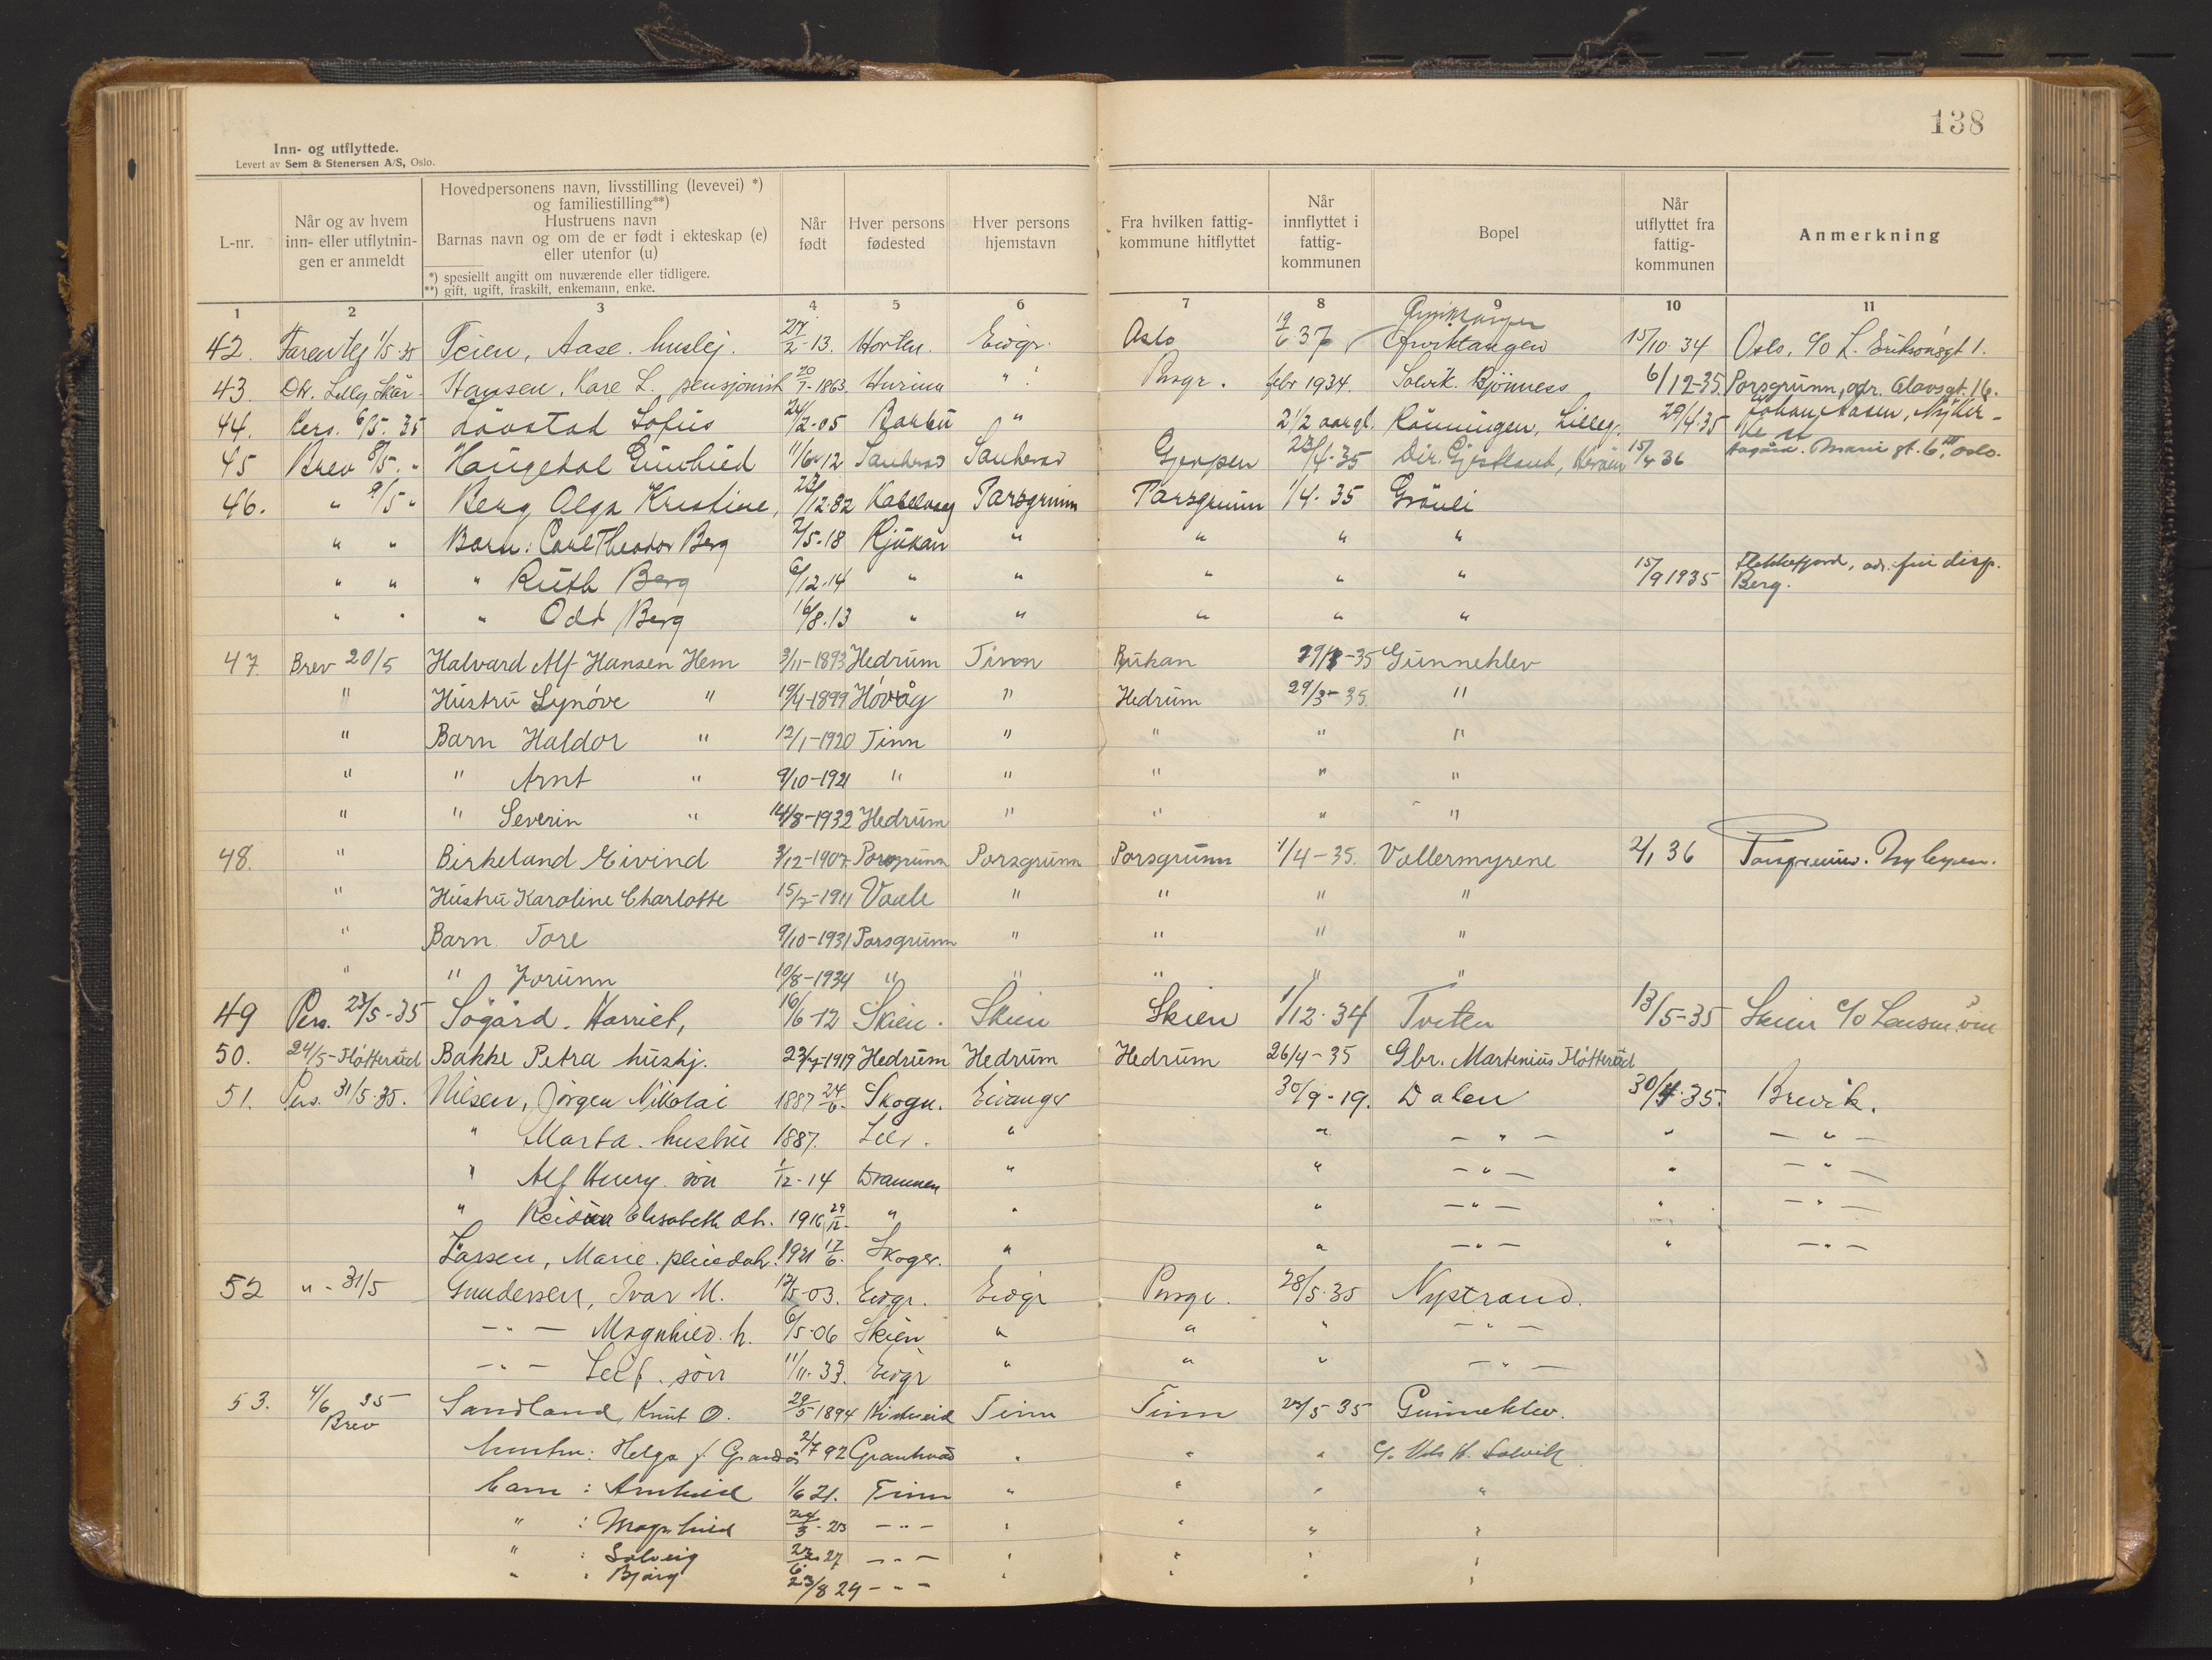 138
Inn- og utflyttede.
Levert av Sem & Stenersen A/S, Oslo.
L-nr.
Når og av hvem inn- eller utflytnin-gen er anmeldt
Hovedpersonens navn, livsstilling (levevei) *) og familiestilling**) Hustruens navn Barnas navn og om de er født i ekteskap (e) eller utenfor (u)
*) spesiellt angitt om nuværende eller tidligere.
**) gift, ugift, fraskilt, enkemann, enke.
Når født
Hver persons fødested
Hver persons hjemstavn
Fra hvilken fattig-kommune hitflyttet
Når innflyttet i fattig-kommunen
Bopel
Når utflyttet fra fattig-kommunen
Anmerkning
1 2 3 4 5 6 7 8 9 10 11
42. Teien, Aase. huslej. 27/2-13. Horten. Eidgr. Oslo 15/10 34 Oslo, c/o L. Eriksönsgt 1.
43. Hansen, Kare L. pensjonist 20/7-1863. Hurum " Prsgr. febr 1934. Solvik. Bjönness 6/12-35. Porsgrunn, adr. Olavsgt. 16.
44. Pers. 6/5. 35 Lövstad Sofus 24/2-05 Barbu " 2 1/2 aar gl. Rönningen, Lilleg. 29/4-35 Johan Aasen,
45 Brev 8/5. " Haugedal Gunhild 11/6-12 Sauherad Sauherad Gjerpen 23/4-35 Dir. Gjestland, Heröen 15/4 36 Marie gt. 6, Oslo.
46. " 9/5 " Berg Olga Kristine, 23/12-82 Kabelvaag Porsgrunn Porsgrunn 1/4. 35 Gråuli
" " Barn: Carl Theodor Berg 2/5-18 Rjukan " " " "
" " " Ruth Berg 6/12-14 " " " " " 15/9 1935 Flekkefjord, adr. frü disp. Berg.
" " " Odd Berg 16/8.13 " " " " "
47. Brev 20/5 Halvard Alf Hansen Hem 3/11-1893 Hedrum Tinn Rjukan 29/3-35 Gunneklev
" Hustru Synöve " 19/4-1899 Hövåg " Hedrum 29/3-35. "
" Barn Haldor " 12/1-1920 Tinn " " " "
" " Arnt " 9/10-1921 " " " " "
" " Severin " 14/8-1932 Hedrum " " " "
48. " Birkeland Eivind 3/12-1907 Porsgrunn Porsgrunn Porsgrunn 1/4-35. Vallermyrene 2/1 36 Porsgrunn.
" Hustru Karoline Charlotte 15/7-1911 Vaale " " " "
" Barn. Tore 9/10-1931 Porsgrunn " " " "
" " Jorunn 10/8-1934 " " " " "
49 Pers. 23/5-35 Sögård. Harriet, 16/6-12 Skien. Skien Skien 1/12-34 Tveten 13/5-35 Skien c/o
50. 24/5-Flötterud Bakke Petra hushj. 23/7-1919 Hedrum Hedrum Hedrum 26/4-35 Gbr. Martenius Flötterud
51. Pers. 31/5-35. Nilsen, Jörgen Nikolai 1887 24/6. Skogn. Eidanger 30/9-19. Dalen 30/4-35. Brevik.
" Marta. hustru 1887. " " - " - " - " -
" Alf Henry. sön 1/12-14 Drammen " " - " - " - " -
" Reidun Elisabeth dt. 1916 29/12. " " " - " - " - " -
Larsen, Marie. pleiedatt. 1921 17/6. Skoger. " " - " - " - " -
52 " - 31/5 Gundersen, Ivar M. 12/5-03. Eidgr. Eidgr Prsgr. 28/5-35 Nystrand.
- " - Magnhild. h. 6/5-06 Skien " " " - " -
- " - Leif. sön 11/11-33. Eidgr " " " - " -
53. 4/6 35 Brev Sandland, Knut O. 29/5 1894 Kviteseid Tinn Tinn 25/5 35 Gunneklev.
hustru: Helga f. 2/7 92 " " " c/o Nils H. Solvik
barn: Arnhild 1/6 21. Tinn " " " "
" : Magnhild 24/3-23 - " - " " " "
" : Solveig 27 - " - " " " "
" : Bjarg 23/8 29 - " - " " " "